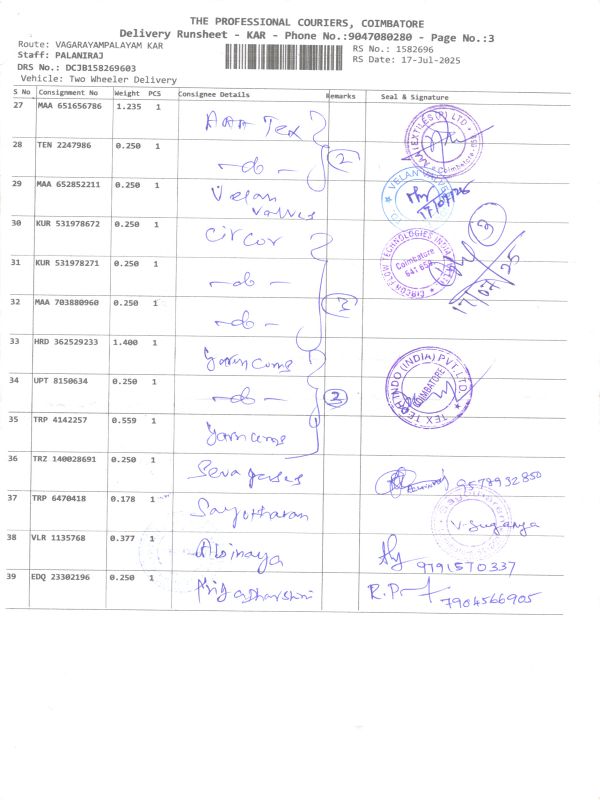 THE PROFESSIONAL COURIERS, COIMBATORE
Delivery Runsheet - KAR - Phone No.:9047080280 - Page No.:3
Route: VAGARAYAMPALAYAM KAR
RS No.: 1582696
Staff: PALANIRAJ
RS Date: 17-Jul-2025
DRS No.: DCJB158269603
Vehicle: Two Wheeler Delivery
S No Consignment No Weight PCS Consignee Details Remarks Seal & Signature
27 MAA 651656786 1.235 1 AAA Tex
28 TEN 2247986 0.250 1 -do- 2
29 MAA 652852211 0.250 1 Velan valves VELAN VALVES 17/07/25
30 KUR 531978672 0.250 1 Circor Coimbatore 3
31 KUR 531978271 0.250 1 -do- 17/07/25
32 MAA 703880960 0.250 1 -do- 3
33 HRD 362529233 1.400 1
34 UPT 8150634 0.250 1 -do- 2 TEX TECH INDO (INDIA) PVT. LTD. COIMBATORE
35 TRP 4142257 0.559 1
36 TRZ 140028691 0.250 1 9578932850
37 TRP 6470418 0.178 1 V. Suganya
38 VLR 1135768 0.377 1 Abinaya 9791570337
39 EDQ 23302196 0.250 1 Priyadharshini R.P 7904566905